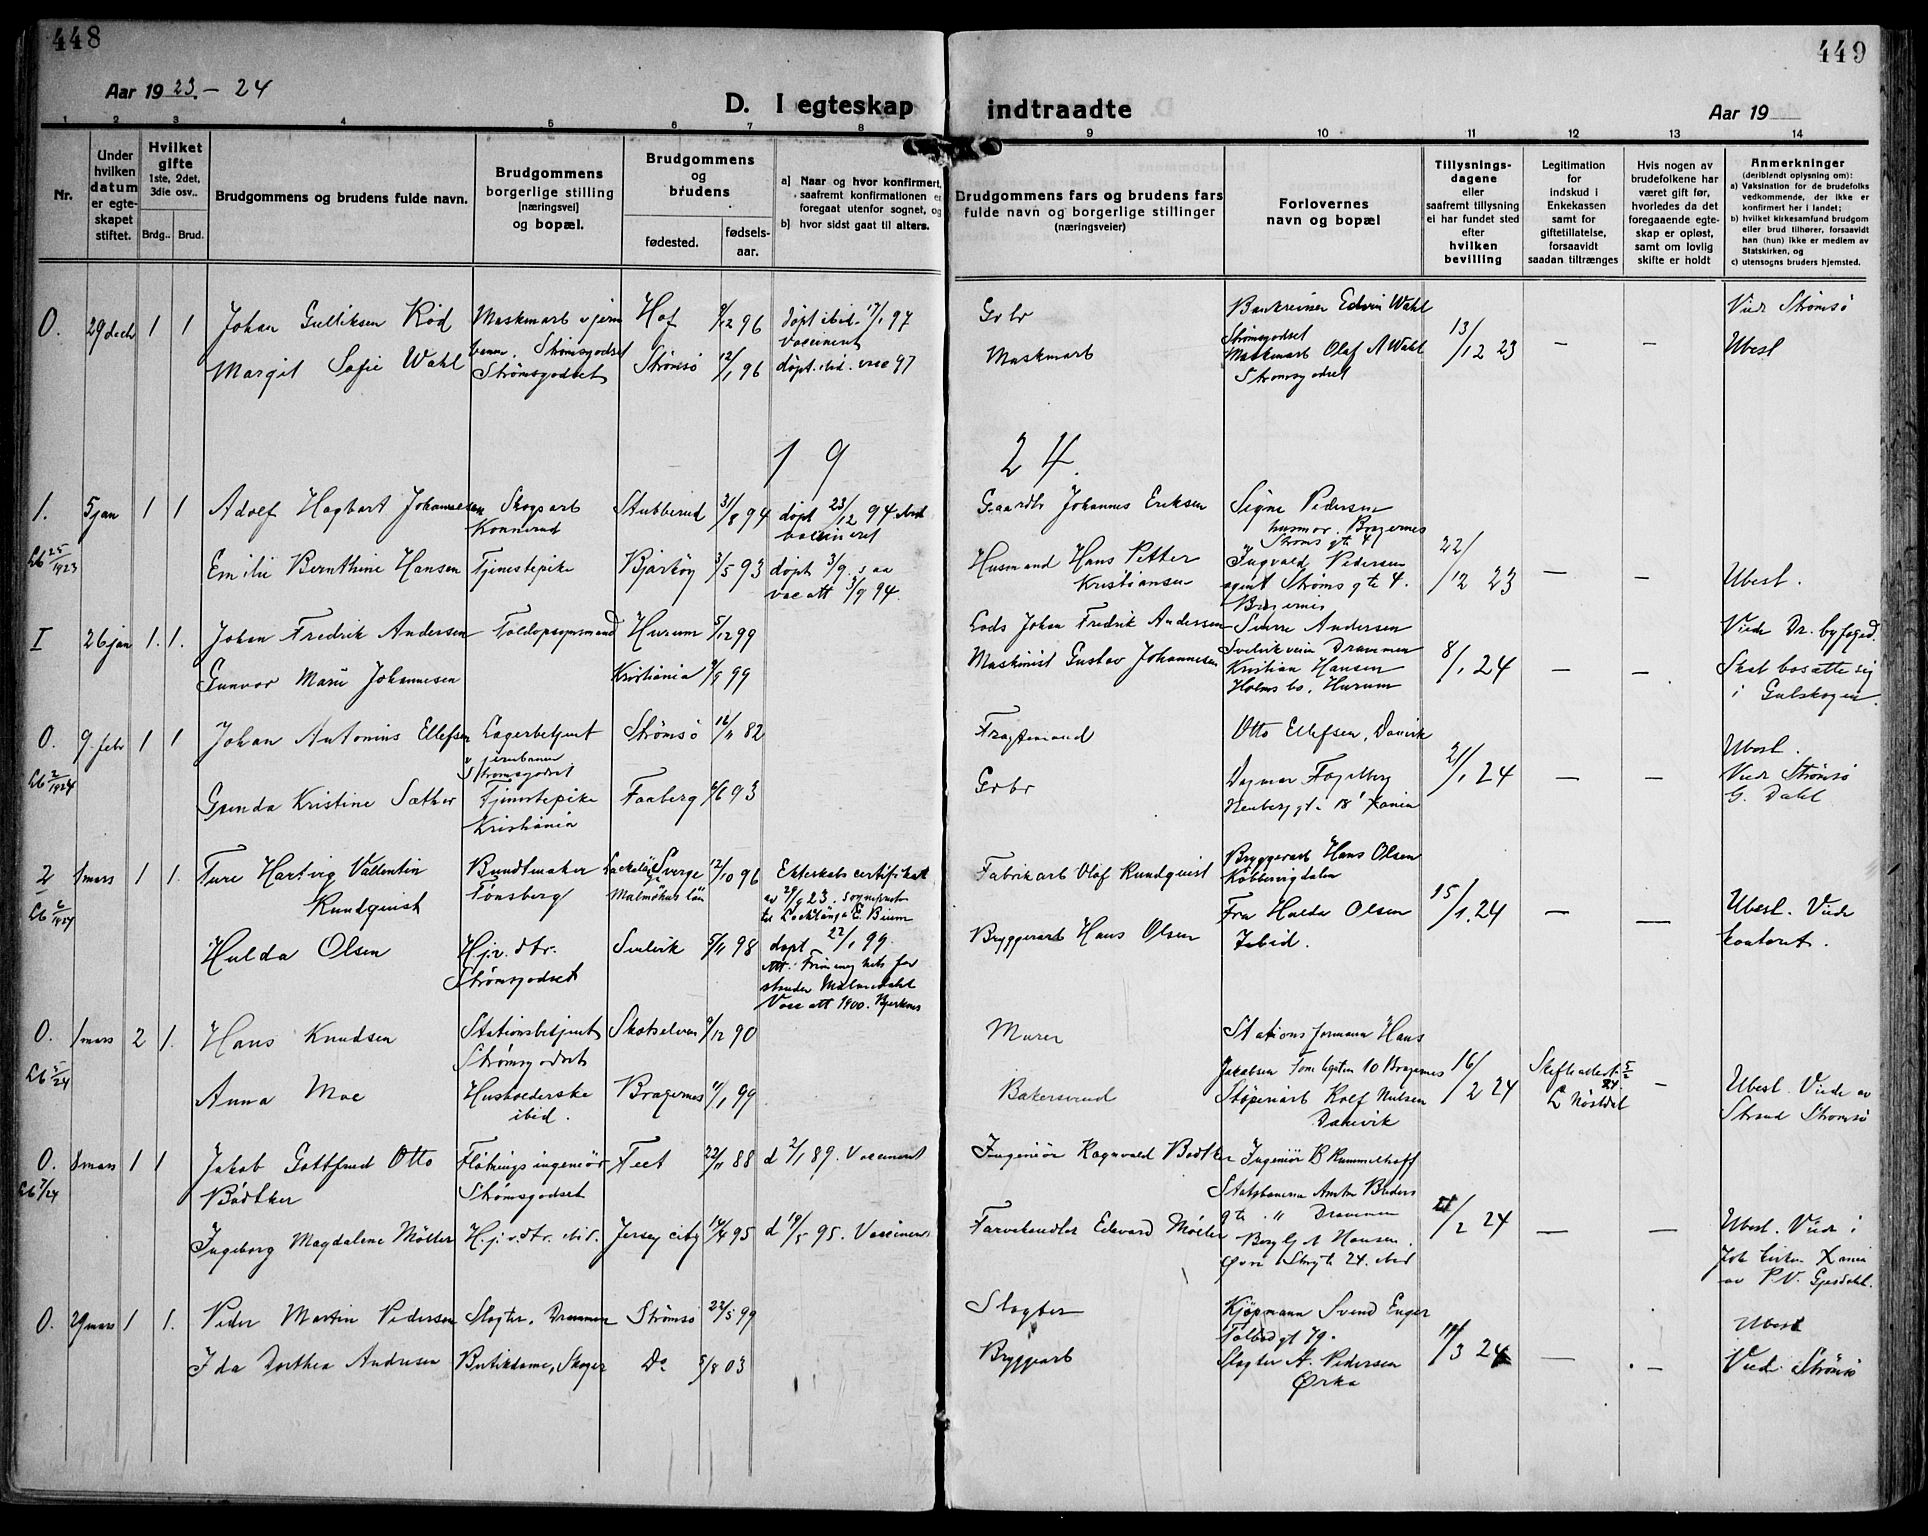 448
449
Aar 1923 - 24
D. I egteskap indtraadte
Aar 19
1 2 3 4 5 6 7 8 9 10 11 12 13 14
Nr.
Under hvilken datum er egteskapet stiftet.
Hvilket gifte 1ste, 2det, 3die osv..
Brdg.. Brud.
Brudgommens og brudens fulde navn.
Brudgommens borgerlige stilling [næringsvei] og bopæl.
Brudgommens og brudens
fødested.
fødselsaar.
a) Naar og hvor konfirmert, saafremt konfirmationen er foregaat utenfor sognet, og
b) hvor sidst gaat til alters.
Brudgommens fars og brudens fars fulde navn og borgerlige stillinger (næringsveier)
Forlovernes navn og bopæl
Tillysningsdagene eller saafremt tillysning ei har fundet sted efter hvilken bevilling
Legitimation for indskud i Enkekassen samt for giftetillatelse, forsaavidt saadan tiltrænges
Hvis nogen av brudefolkene har været gift før, hvorledes da det foregaaende egteskap er opløst, samt om lovlig skifte er holdt
Anmerkninger (deriblendt oplysning om):
a) Vaksination for de brudefolks vedkommende, der ikke er konfirmert her i landet;
b) hvilket kirkesamfund brudgom eller brud tilhører, forsaavidt han (hun) ikke er medlem av Statskirken, og
c) utensogns bruders hjemsted.
0. 29 dech 1 1 Johan Gulliksen Rød Hof 96 døpt ibid. 17/1 97 Grbr Edvin Wahl Viede Strømsø
Strømsgodset vaccinert Strømsgodset 13/12 23 - -
Margit Sofie Wahl Strømsgodset Strømsø 12/1 96 døpt ibid. vac 97 Maskinarb Maskinarb Olaf A Wahl Ubesl
Strømsgodset
19 24.
1. 5 jan 1 1 Adolf Hagbart Johannesen Skogsarb Stubberud 31/8 94 døpt 23/12 94 ibid Gaardbr Johannes Eriksen Signe Pedersen
Konnerud vaccineret husmor, Bragernes
Lb 25/1923 Strøms gte 4
Emilie Bernthine Hansen Tjenestepike Bjørkøy 3/5 93 døpt 3/9 s aa Husmand Hans Petter Ingvald Pedersen 22/12 23 - - Ubesl.
vac att 3/9 94. Kristiansen agent Strøms gte 4.
Bragernes
I 26 jan 1. 1. Johan Fredrik Andersen Toldopsynsmand Hurum 5/12 99 Lods Johan Fredrik Andersen Sverre Andersen Viede Dr. byfoged.
Svelvikveien Drammen 8/1 24 - -
Gunvor Marie Johannesen Kristiania 9/9 99 Maskinist Gustav Johannesen Kristian Hansen Skal bosætte sig
Holmsbo, Hurum i Gulskogen
0. 9. febr 1 1 Johan Antonius Ellefsen Lagerbetjent Strømsø 16/11 82 Fragtemand Otto Ellefsen, Danvik Ubesl.
v jernbanen
Lb 2/1924 Strømsgodset 21/1 24 - - Viede Strømsø
Gunda Kristine Sæther Tjenestepike Faaberg 6/6 93 Grbr Dagmar Fagelberg G. Dahl
Kristiania Neuberg gt. 18 Xania
2 1 mars 1 1. Ture Hartvig Vallentin Bundtmaker Sverge 12/10 96 Ekteskabscertifikat Fabrikarb Olof Rundquist Bryggerarb Hans Olsen
Rundquist Tønsberg Malmöhus län av 29/9 23. Kobbervigdalen
Lb 6/1924 15/1 24 - - Ubesl. Viede
Hulda Olsen Hj.v. dtr. Svelvik 5/11 98 døpt 22/1 99. Bryggerarb Hans Olsen Fru Hulda Olsen kontoret.
Strømsgodset ibid.
Vacc att 1900.
0. 1 mars 2 1. Hans Knudsen Stationsbetjent Skotselven 9/12 90 Murer Stationsformann Hans
Lb 5/24 Strømsgodset Jakobsen 10 Bragernes 16/2 24 -
Anna Moe Husholderske Bragernes 11/1 99 Bakersvend Støperiarb Rolf Nilsen Ubesl. Viede av
ibid. Danvik Strand Strømsø
0. 8 mars 1 1 Jakob Gottfred Otto Fløtningsingeniør Feet 22/11 88 d 2/1 89. Vaccinert Ingeniør Ragnvald Bødtker Ingeniør B Rummelhoff
Lb 7/24 Bødtker Strømsgodset 21/2 24 - -
Ingeborg Magdalene Möller H.j.v.dtr. ibid. Jersey city 14/4 95 d 19/5 95. Vaccinert Farvehandler Edevard Möller Hansen. Ubesl. Viede i
Øvre Storgte 24. ibid Joh kirke Xania
av P.V. Gjesdahl.
0. 29 mars 1 1. Peder Martin Pedersen Slagter, Drammen Strømsø 22/5 99 Slagter Kjøpmann Svend Enger Ubesl
Tolbodgt 79. 11/3 24 - -
Ida Dorthea Andresen Butikdame, Skoger Do 5/8 03 Bryggearb Slagter A. Pedersen Viede i Strømsø
Ørka